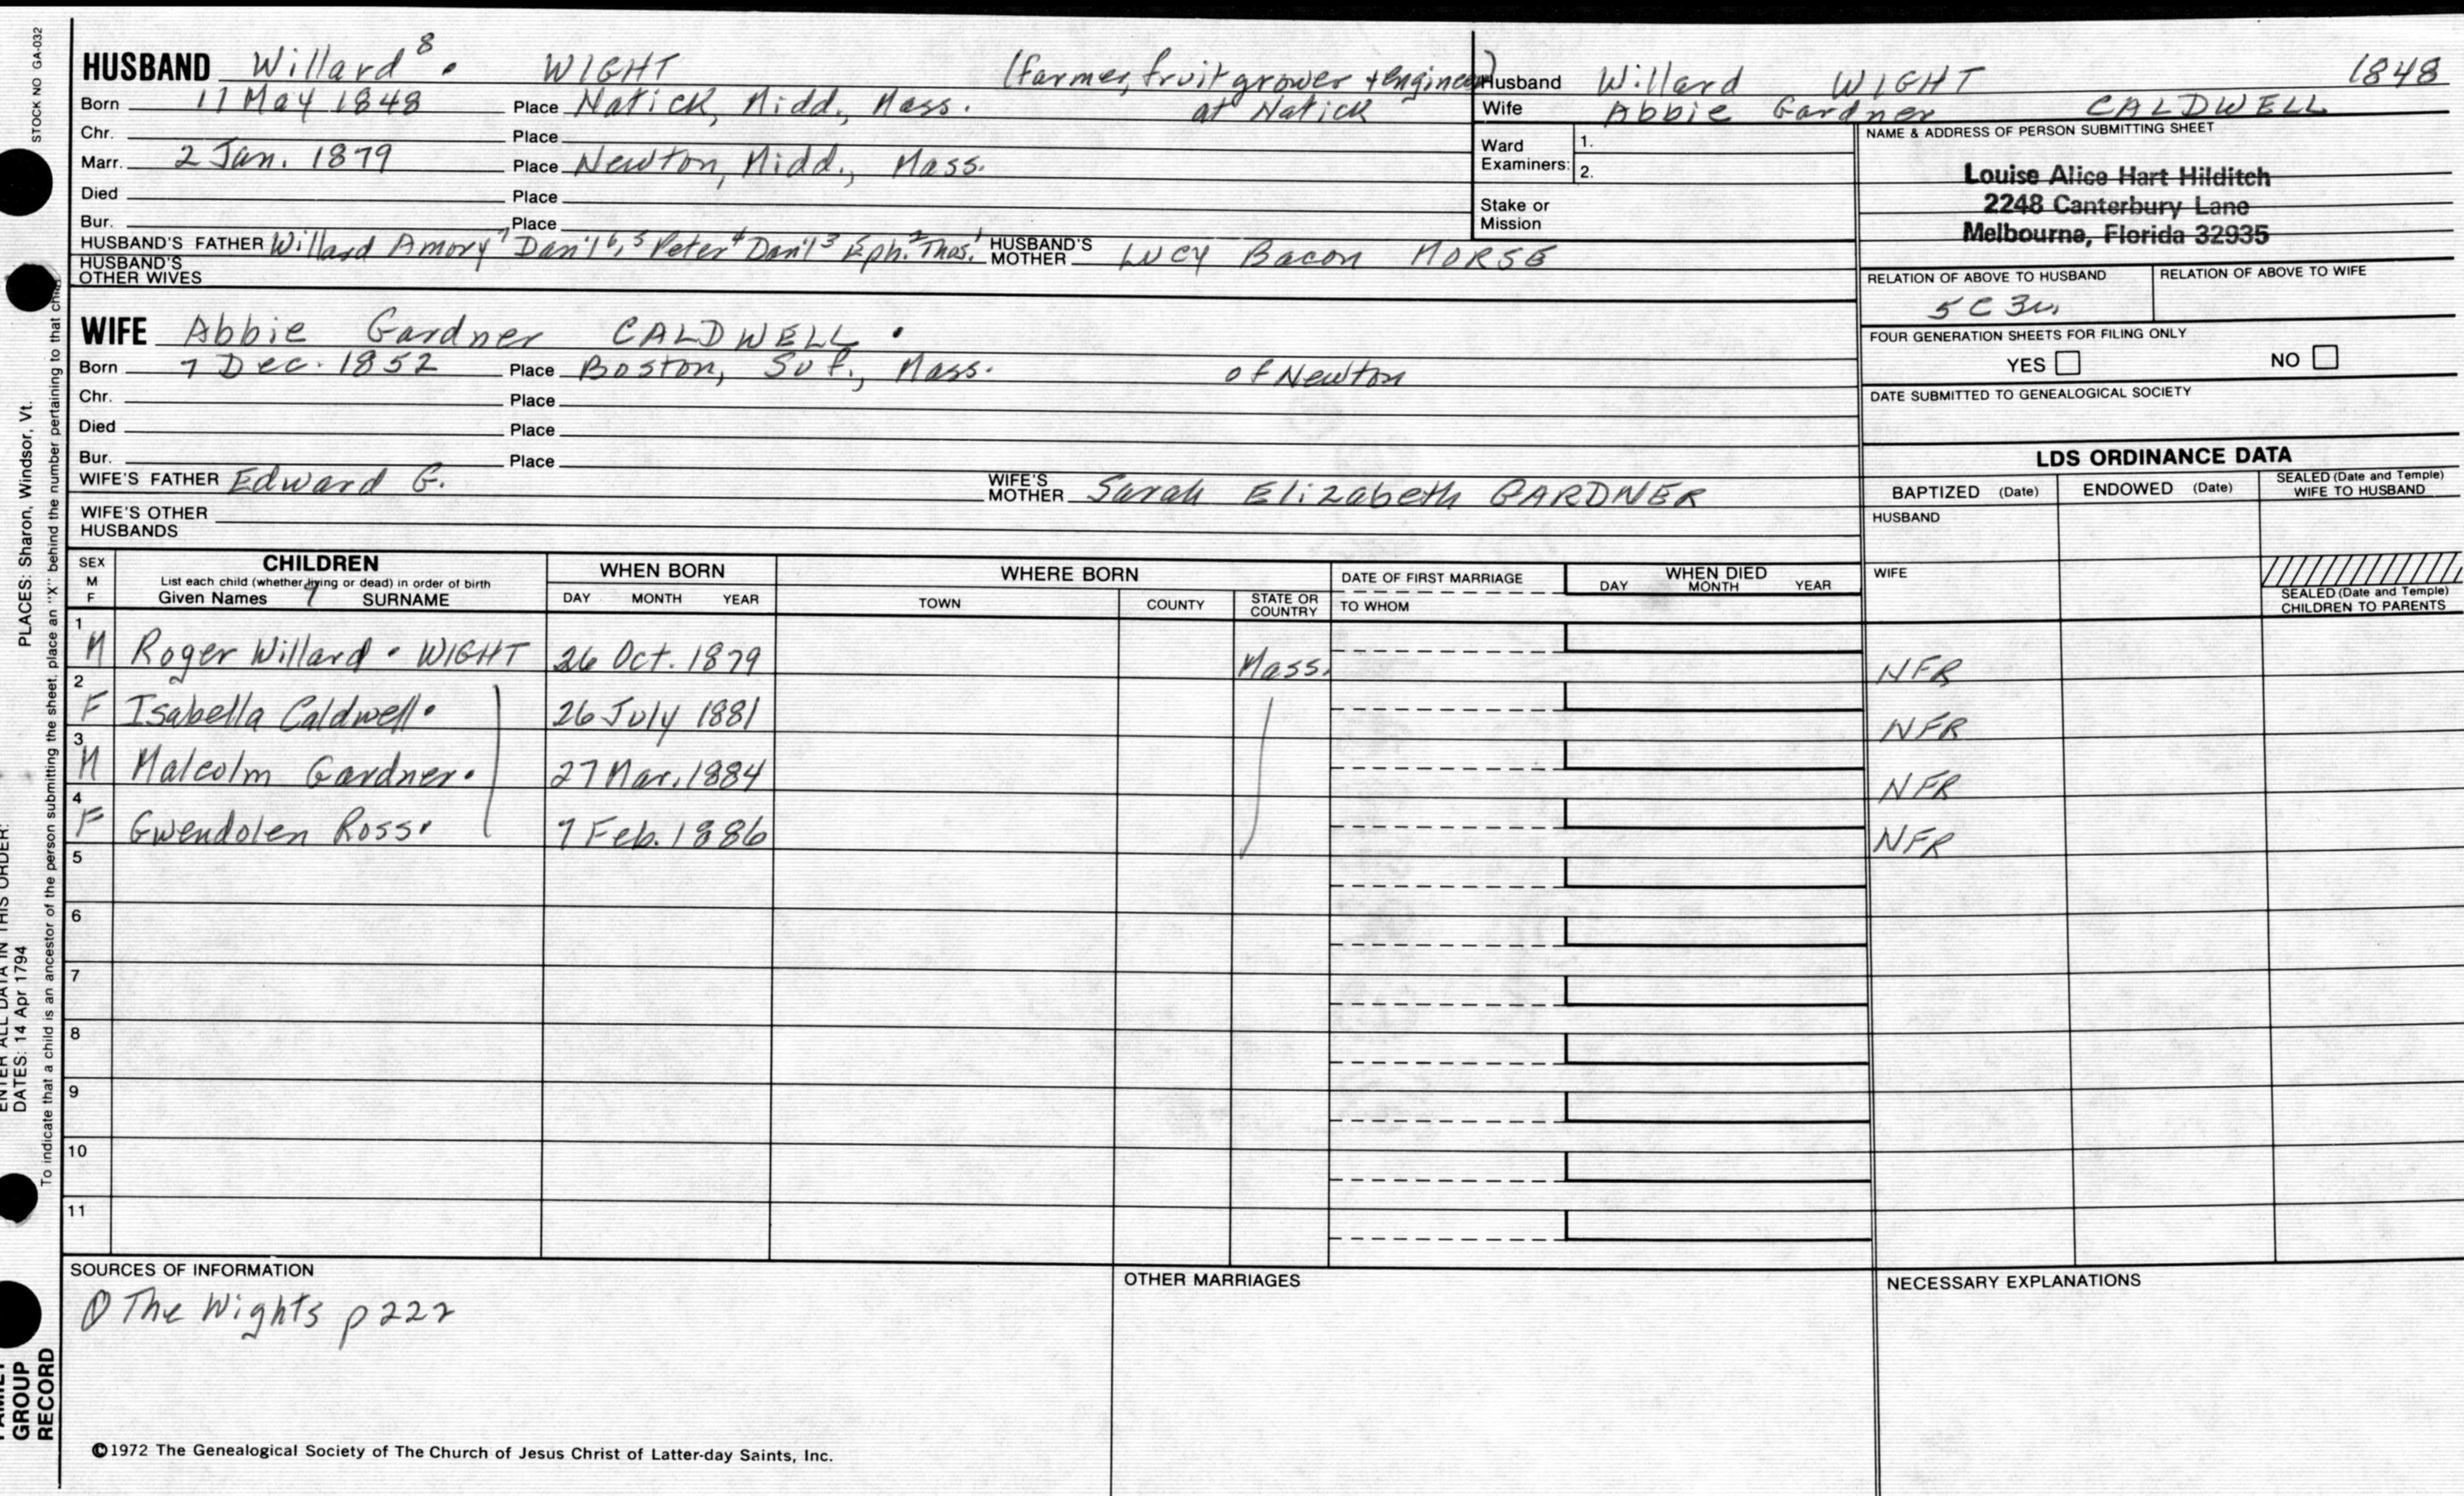 STOCK NO GA-032
PLACES: Sharon, Windsor, Vt.
ENTER ALL DATA IN THIS ORDER:
DATES: 14 Apr 1794
To indicate that a child is an ancestor of the person submitting the sheet, place an "X" behind the number pertaining to that child.
FAMILY GROUP RECORD
HUSBAND Willard⁸ . WIGHT (farmer, fruit grower + engineer)
Born 17 May 1848 Place Natick, Midd., Mass. at Natick
Chr. Place
Marr. 2 Jan. 1879 Place Newton, Midd., Mass.
Died Place
Bur. Place
HUSBAND'S FATHER Willard Amory⁷ Dan'l⁶,⁵ Peter⁴ Dan'l³ Eph.² Thos.¹ HUSBAND'S MOTHER Lucy Bacon MORSE
HUSBAND'S OTHER WIVES
Husband Willard WIGHT 1848
Wife Abbie Gardner CALDWELL
Ward Examiners: 1.
2.
Stake or Mission
NAME & ADDRESS OF PERSON SUBMITTING SHEET
Louise Alice Hart Hilditch
2248 Canterbury Lane
Melbourne, Florida 32935
RELATION OF ABOVE TO HUSBAND RELATION OF ABOVE TO WIFE
5C3r
FOUR GENERATION SHEETS FOR FILING ONLY
YES NO
DATE SUBMITTED TO GENEALOGICAL SOCIETY
WIFE Abbie Gardner CALDWELL .
Born 7 Dec. 1852 Place Boston, Suf., Mass. of Newton
Chr. Place
Died Place
Bur. Place
WIFE'S FATHER Edward G. WIFE'S MOTHER Sarah Elizabeth GARDNER
WIFE'S OTHER HUSBANDS
LDS ORDINANCE DATA
BAPTIZED (Date) ENDOWED (Date) SEALED (Date and Temple) WIFE TO HUSBAND
HUSBAND
WIFE
SEALED (Date and Temple) CHILDREN TO PARENTS
SEX M F CHILDREN WHEN BORN WHERE BORN DATE OF FIRST MARRIAGE WHEN DIED
List each child (whether living or dead) in order of birth
Given Names SURNAME DAY MONTH YEAR TOWN COUNTY STATE OR COUNTRY TO WHOM DAY MONTH YEAR
1 M Roger Willard . WIGHT 26 Oct. 1879 Mass. NFR
2 F Isabella Caldwell . 26 July 1881 NFR
3 M Malcolm Gardner . 27 Mar. 1884 NFR
4 F Gwendolen Ross . 7 Feb. 1886 NFR
5
6
7
8
9
10
11
SOURCES OF INFORMATION OTHER MARRIAGES NECESSARY EXPLANATIONS
① The Wights p 222
©1972 The Genealogical Society of The Church of Jesus Christ of Latter-day Saints, Inc.